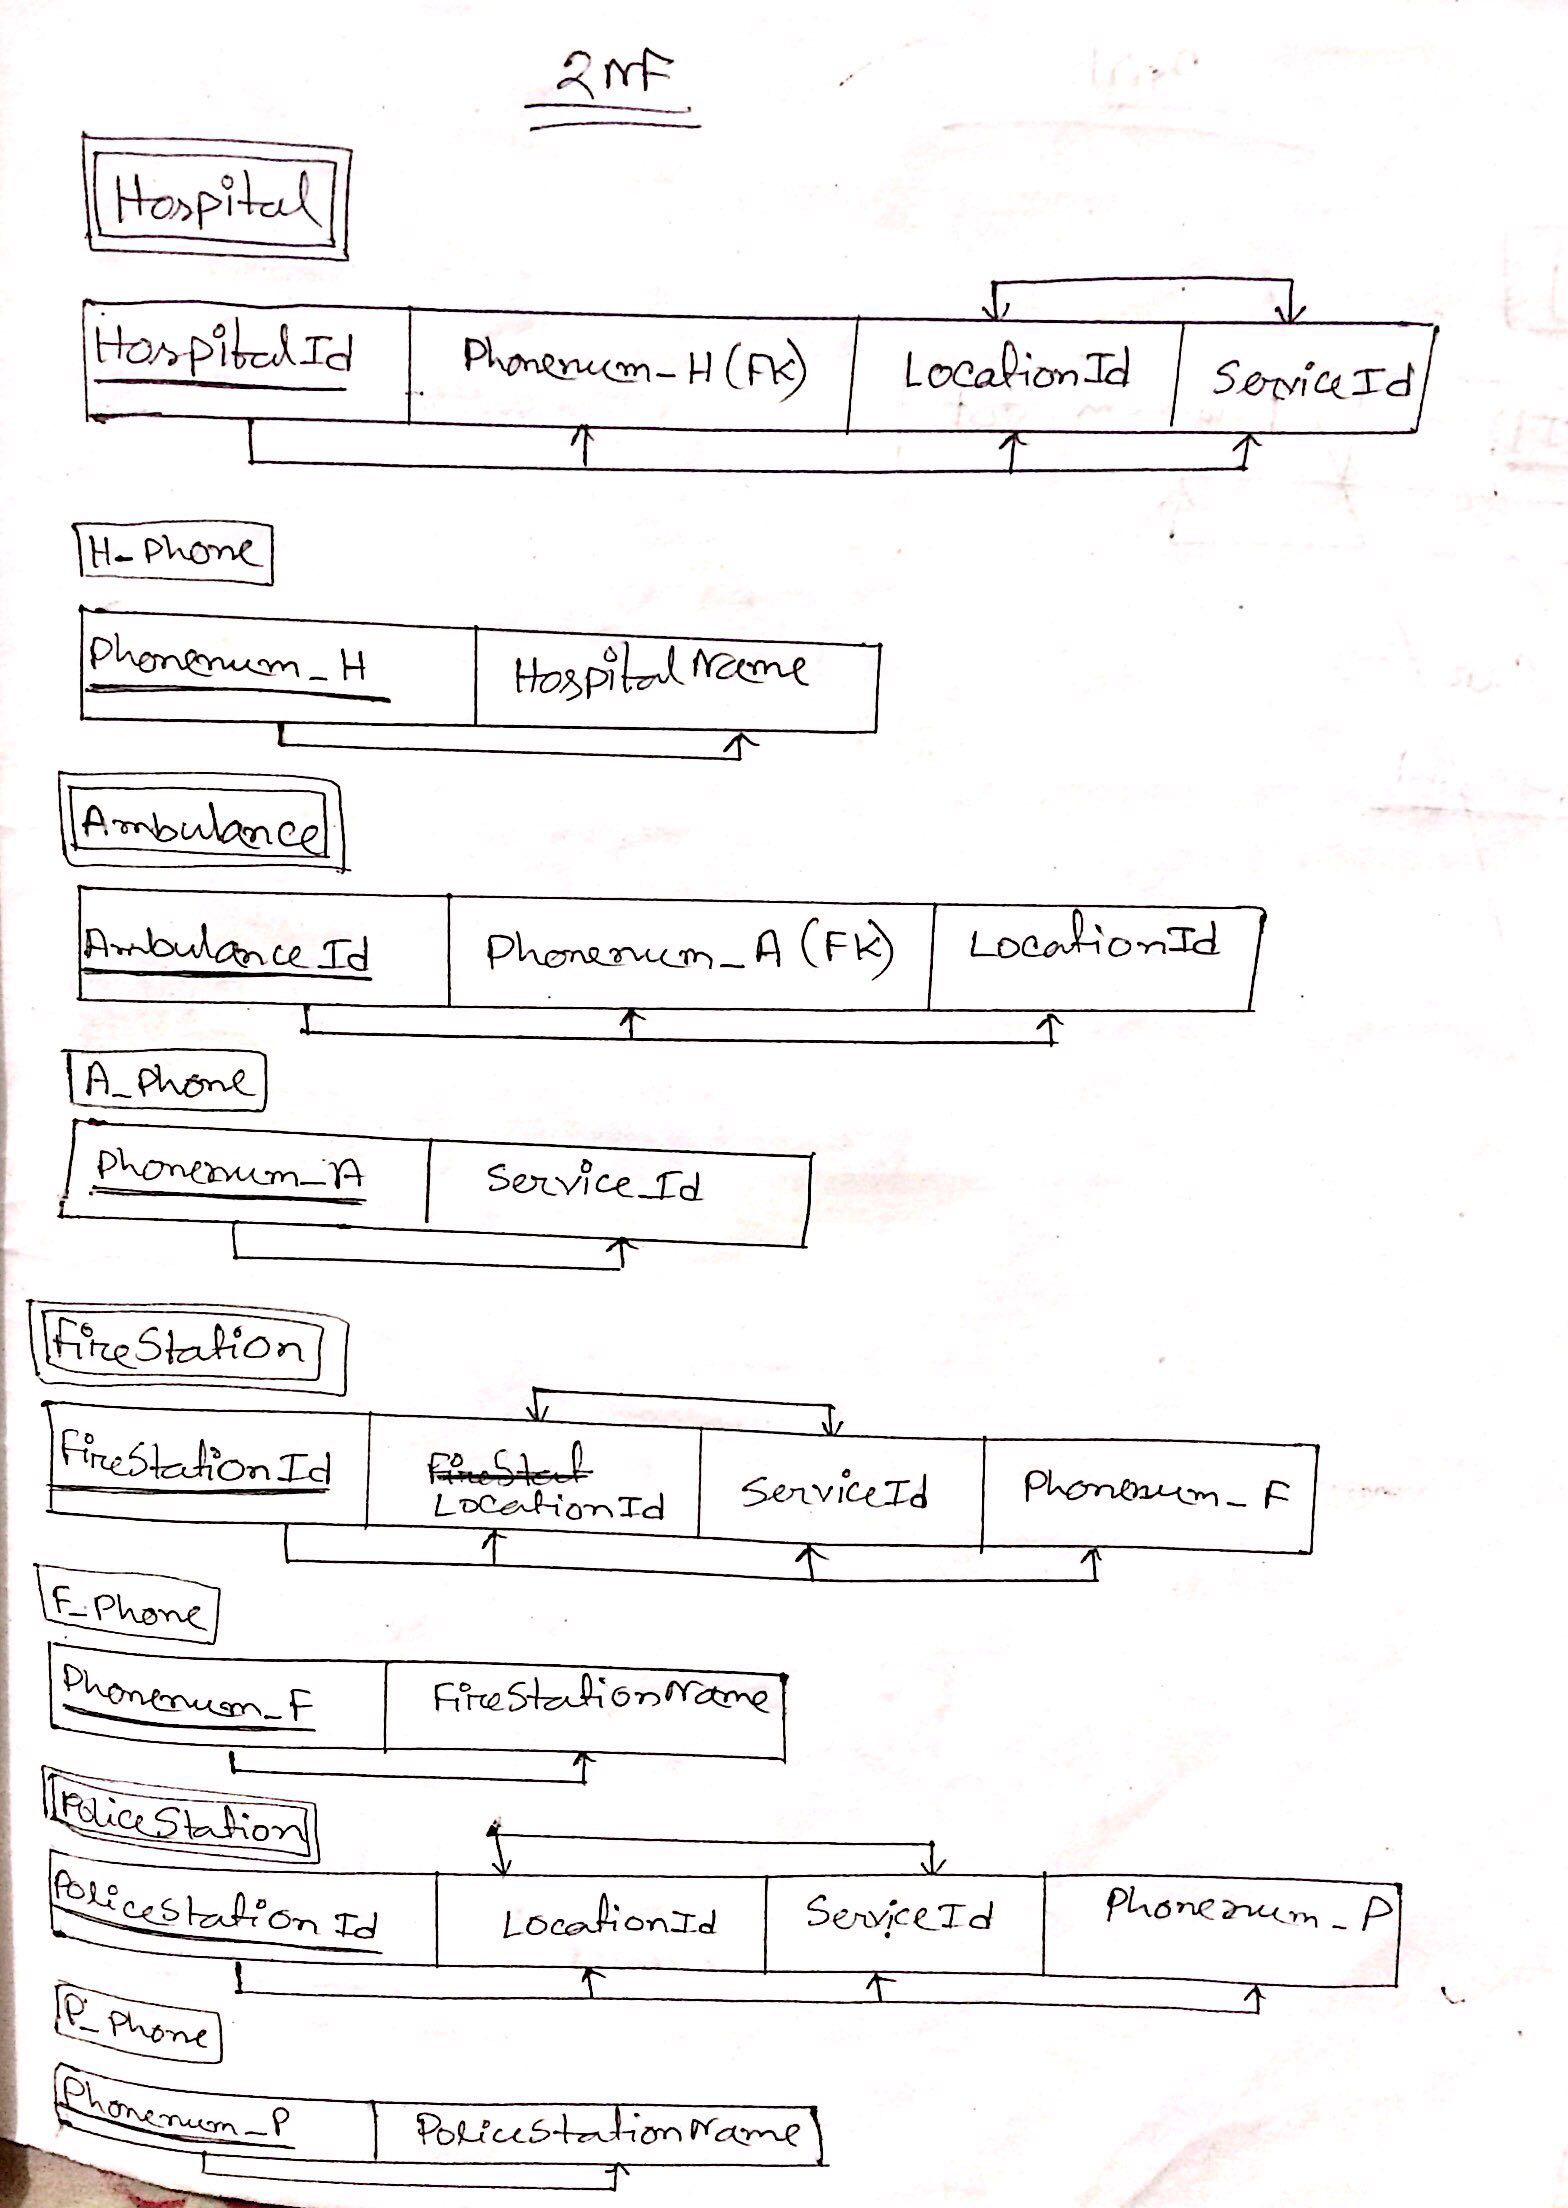 2NF
Hospital
HospitalId Phonenum_H (FK) LocationId ServiceId
H_Phone
Phonenum_H HospitalName
Ambulance
AmbulanceId Phonenum_A (FK) LocationId
A_Phone
Phonenum_A Service_Id
FireStation
FireStationId LocationId ServiceId Phonenum_F
F_Phone
Phonenum_F FireStationName
PoliceStation
PoliceStationId LocationId ServiceId Phonenum_P
P_Phone
Phonenum_P PoliceStationName